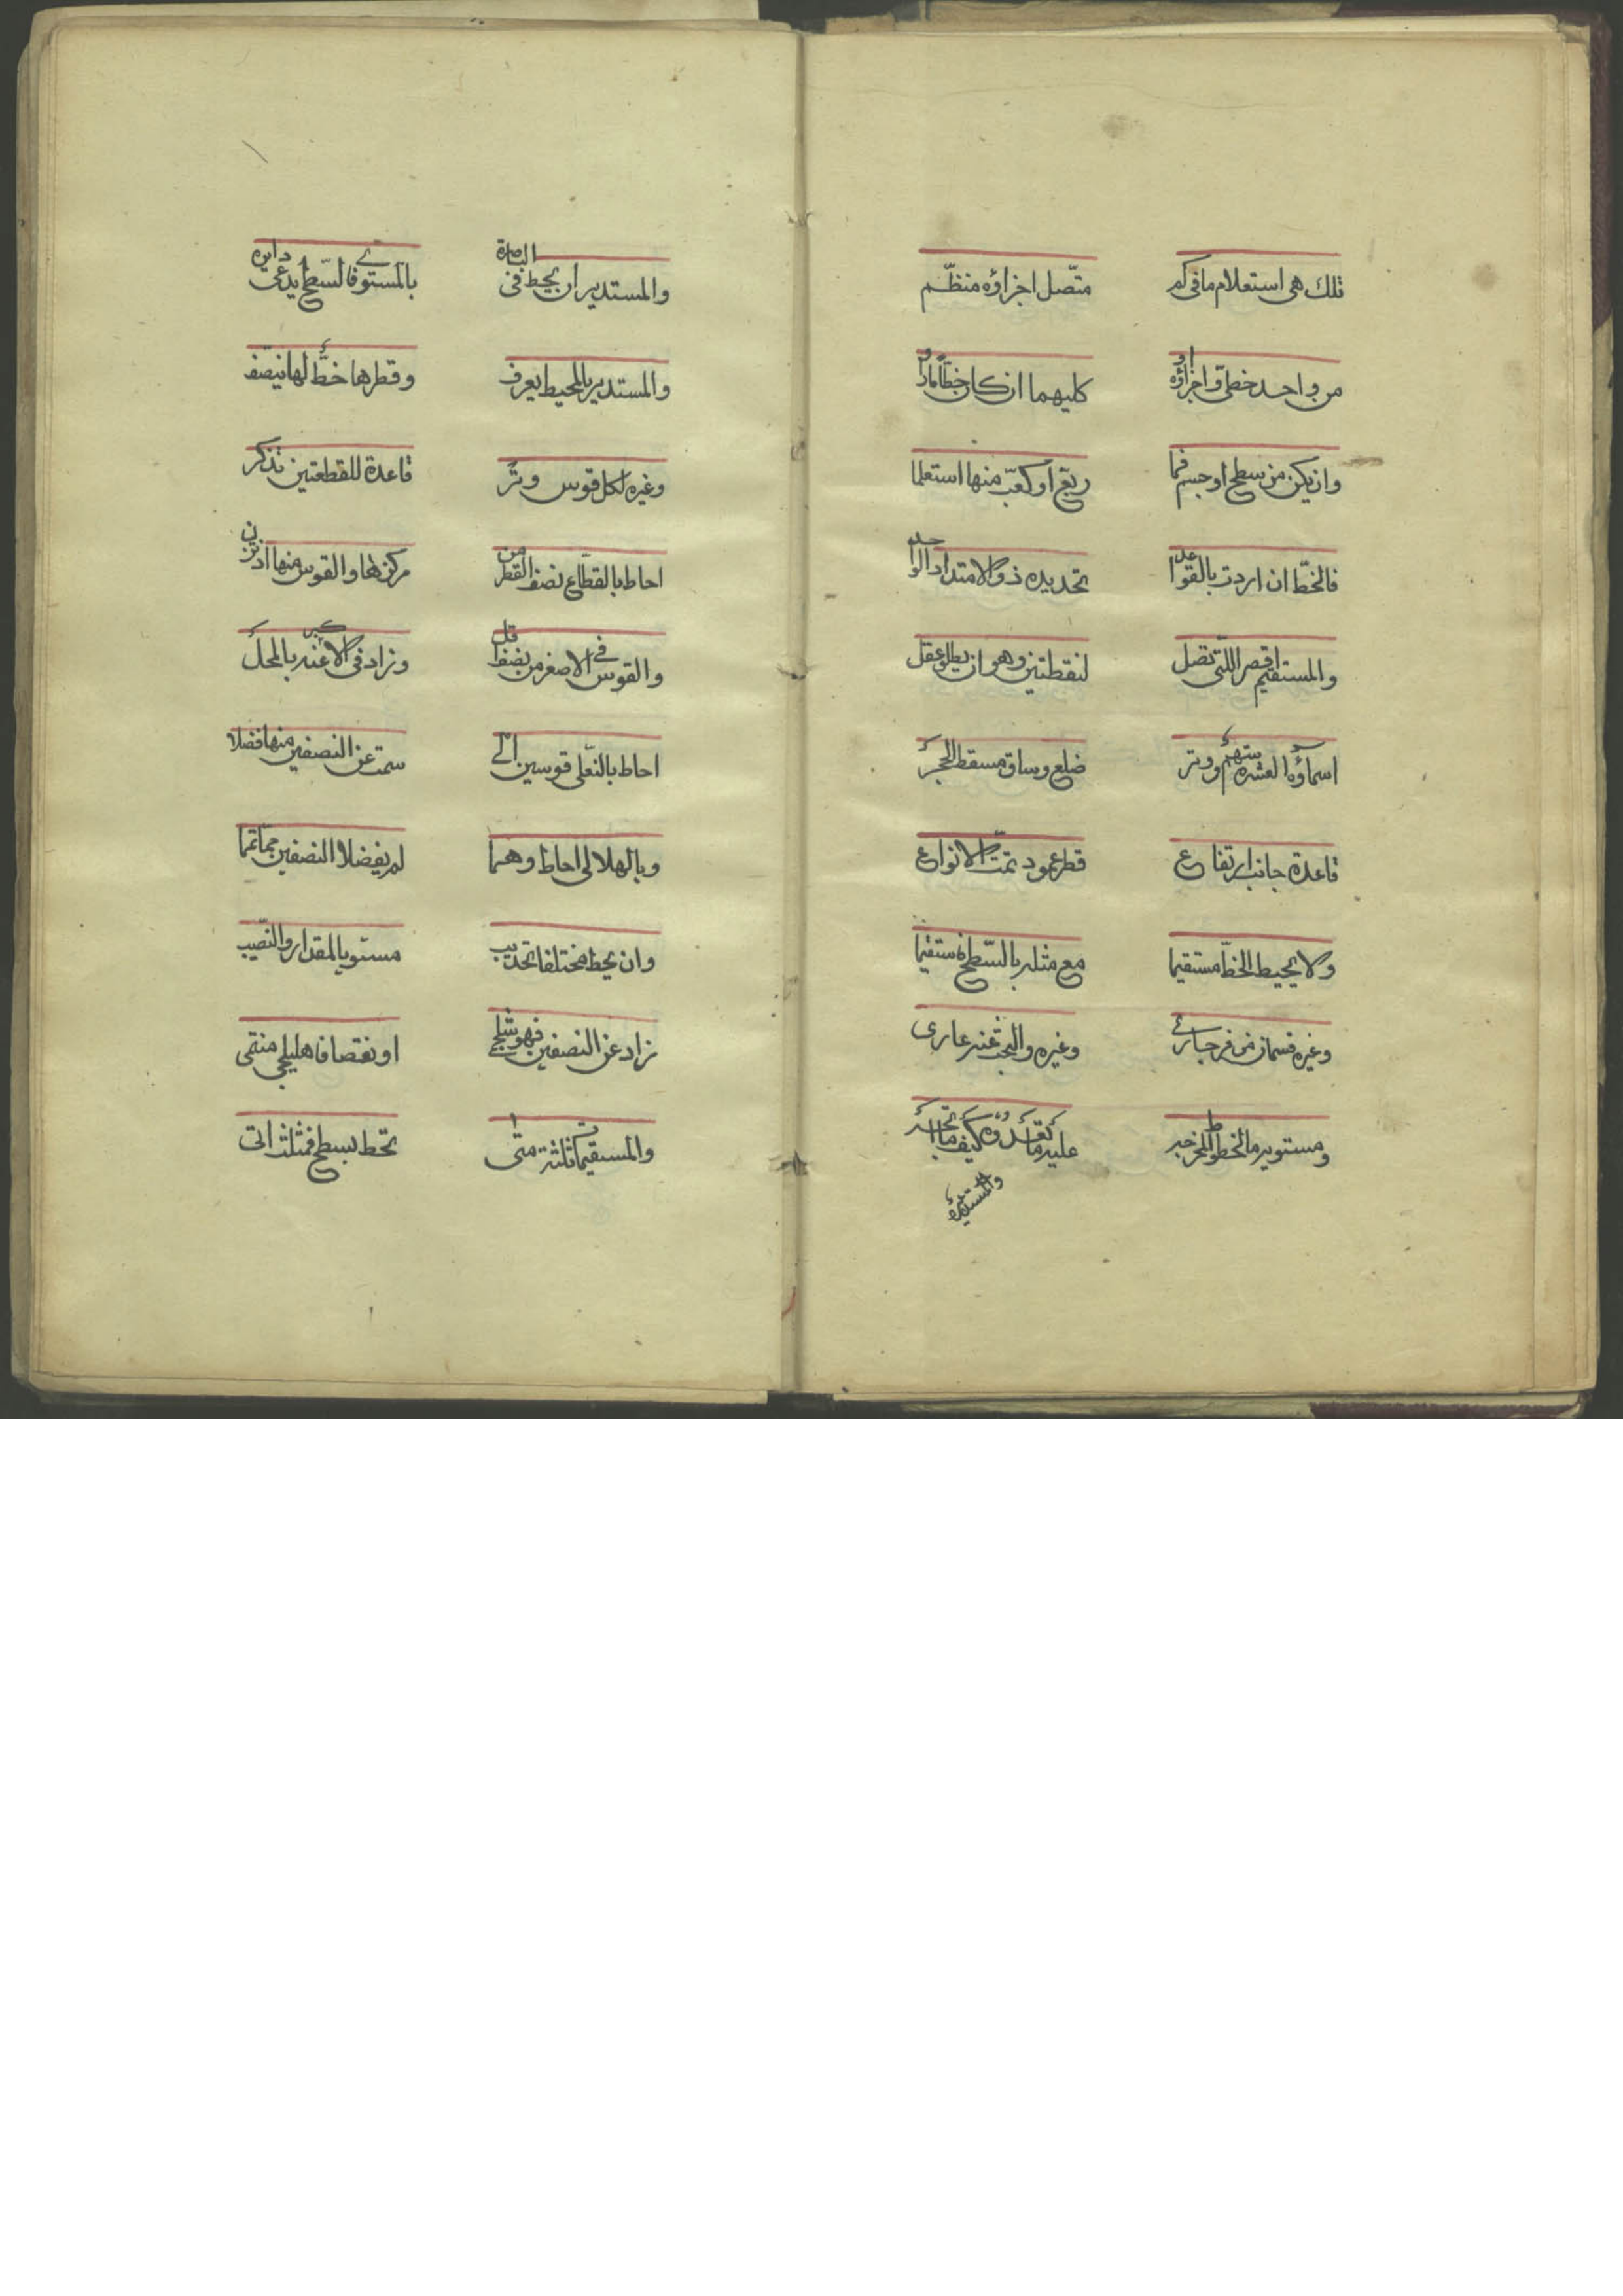 تلك هى استعلام ما فى كم متّصل اجزاؤه منظّم
من واحد خطى او اجزاؤه كليهما ان كان خطّا مارا
وان يكن من سطح او جسم فما ربّع او كعّب منها استعلما
فالخطّ ان اردت بالقواعد تحديده ذو الامتداد الواحد
والمستقيم اقصر اللتى تصل لنقطتين وهو ان يطلق عقل
اسماؤه العشره سهم ووتر ضلع وساق مسقط الحجر
قاعدة جانب ارتفاع قطر عمود تمّت الانواع
ولا يحيط الخطّ مستقيما مع مثله بالسّطح مستقيما
وغيره قسمان من فرجارى وغيره والبحث عنه عارى
ومستويه ما الخطوط المخرجه عليه ما كيف ما
والمستدير
والمستدير ان يحط فى الباصرة بالمستوى فالسّطح يدعى دايره
والمستدير بالمحيط يعرف وقطرها خطّ لها ينصّف
وغيره لكل قوس وتر قاعدة للقطعتين تذكر
احاط بالقطّاع نصف القطر من مركزها والقوس منها اذ تزن
والقوس فى الاصغر من نصف اقل وزاد فى الاكبر عنه بالمحل
احاط بالنعلى قوسين الى سمت عن النصفين منها فضلا
وبالهلالى احاط وهما لم يفضلا النصفين مما تمّا
وان يحط مختلفا تحديب مستويا لمقدار والنصيب
زاد عن النصفين فهو شلجمى او نقصا فاهليلجى منتمى
والمستقيمات ثلثة متى تحط بسطح فمثلث اتى